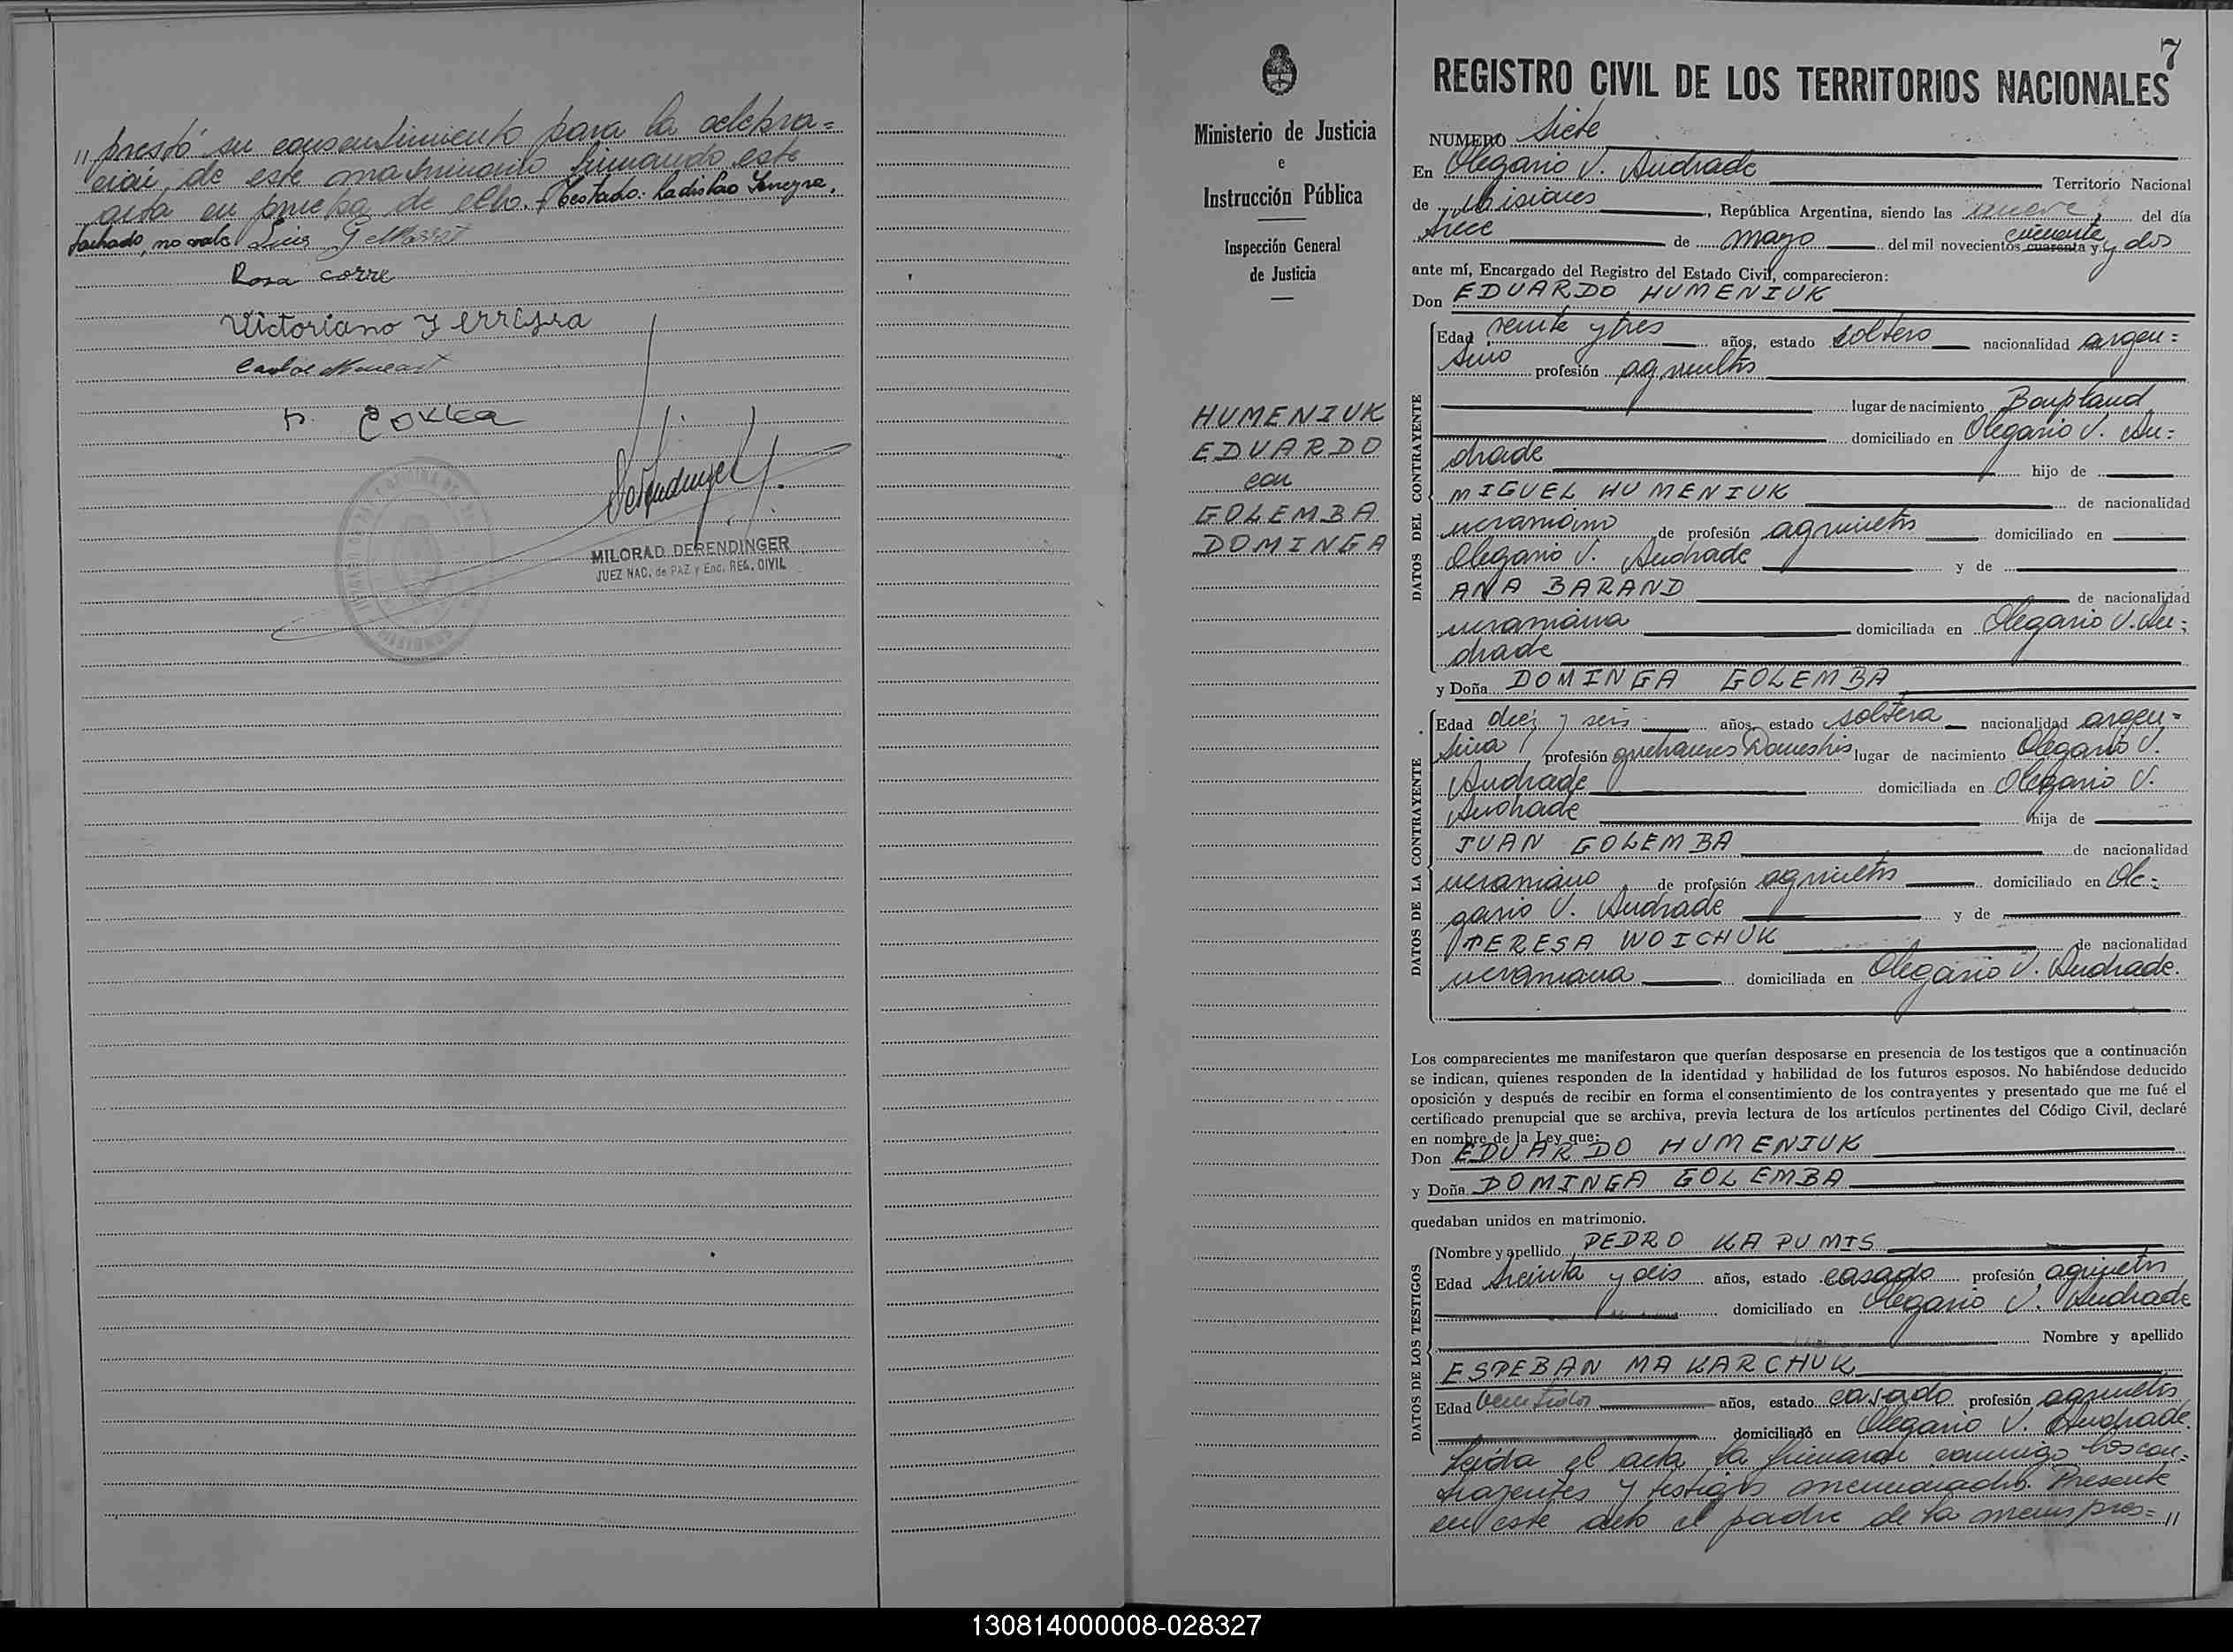 " prestó su consentimiento para la celebra=
ción de este matrimonio firmando esta
acta en prueba de ello. Testado: Ladislao
tachado, no vale Luis
Rosa Corre
Victoriano Y
Carlos
MILORAD DERENDINGER
JUEZ NAC. de PAZ y Enc. REG. CIVIL
Ministerio de Justicia
e
Instrucción Pública
Inspección General
de Justicia
HUMENIUK
EDUARDO
con
GOLEMBA
DOMINGA
7
REGISTRO CIVIL DE LOS TERRITORIOS NACIONALES
NUMERO Siete
En Olegario V. Andrade Territorio Nacional
de Misiones, República Argentina, siendo las nueve, del día
trece de mayo del mil novecientos cuarenta y cincuenta y dos
ante mí, Encargado del Registro del Estado Civil, comparecieron:
Don EDUARDO HUMENIUK
DATOS DEL CONTRAYENTE
Edad veinte y tres años, estado soltero nacionalidad argen=
tino profesión agricultor
lugar de nacimiento Bonpland
domiciliado en Olegario V. An=
drade hijo de
MIGUEL HUMENIUK de nacionalidad
ucraniano de profesión agricultor domiciliado en
Olegario V. Andrade y de
ANA BARAND de nacionalidad
ucraniana domiciliada en Olegario V. An=
drade
y Doña DOMINGA GOLEMBA
DATOS DE LA CONTRAYENTE
Edad diez y seis años, estado soltera nacionalidad argen=
tina profesión quehaceres Domestics lugar de nacimiento Olegario V.
Andrade domiciliada en Olegario V.
Andrade hija de
JUAN GOLEMBA de nacionalidad
ucraniano de profesión agricultor domiciliado en Ole=
gario V. Andrade y de
TERESA WOICHUK de nacionalidad
ucraniana domiciliada en Olegario V. Andrade.
Los comparecientes me manifestaron que querían desposarse en presencia de los testigos que a continuación
se indican, quienes responden de la identidad y habilidad de los futuros esposos. No habiéndose deducido
oposición y después de recibir en forma el consentimiento de los contrayentes y presentado que me fué el
certificado prenupcial que se archiva, previa lectura de los artículos pertinentes del Código Civil, declaré
en nombre de la Ley que:
Don EDUARDO HUMENIUK
y Doña DOMINGA GOLEMBA
quedaban unidos en matrimonio.
DATOS DE LOS TESTIGOS
Nombre y apellido PEDRO KAPUMIS
Edad treinta y seis años, estado casado profesión agricultor
domiciliado en Olegario V. Andrade
Nombre y apellido
ESTEBAN MAKARCHUK
Edad veintidos años, estado casado profesión agricultor
domiciliado en Olegario V. Andrade.
Leída el acta la firmaron conmigo los con=
trayentes y testigos mencionados. Presente
en este acto el padre de la menor pres= "
130814000008-028327